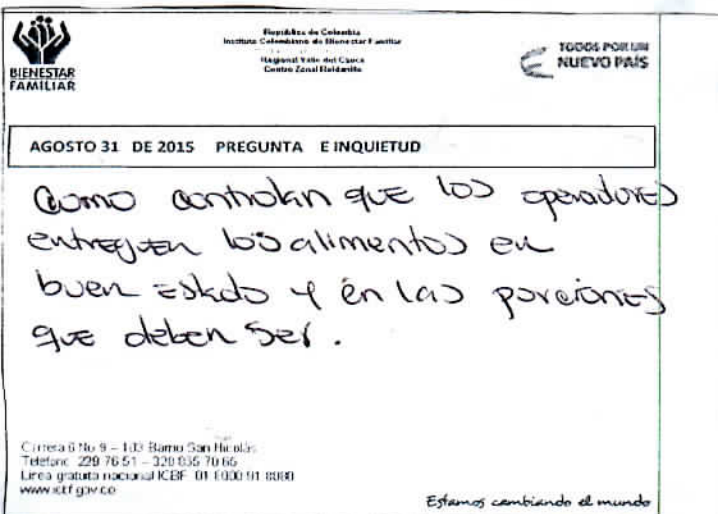 BIENESTAR
FAMILIAR
República de Colombia
Instituto Colombiano de Bienestar Familiar
Regional Valle del Cauca
Centro Zonal Roldanillo
TODOS POR UN
NUEVO PAÍS
AGOSTO 31 DE 2015 PREGUNTA E INQUIETUD
Como controlan que los operadores
entreguen los alimentos en
buen estado y en las porciones
que deben ser.
Carrera 6 No 9 – 103 Barrio San Nicolás
Teléfono: 229 76 51 –
Línea gratuita nacional ICBF 01 8000 91 8080
www.icbf.gov.co
Estamos cambiando el mundo